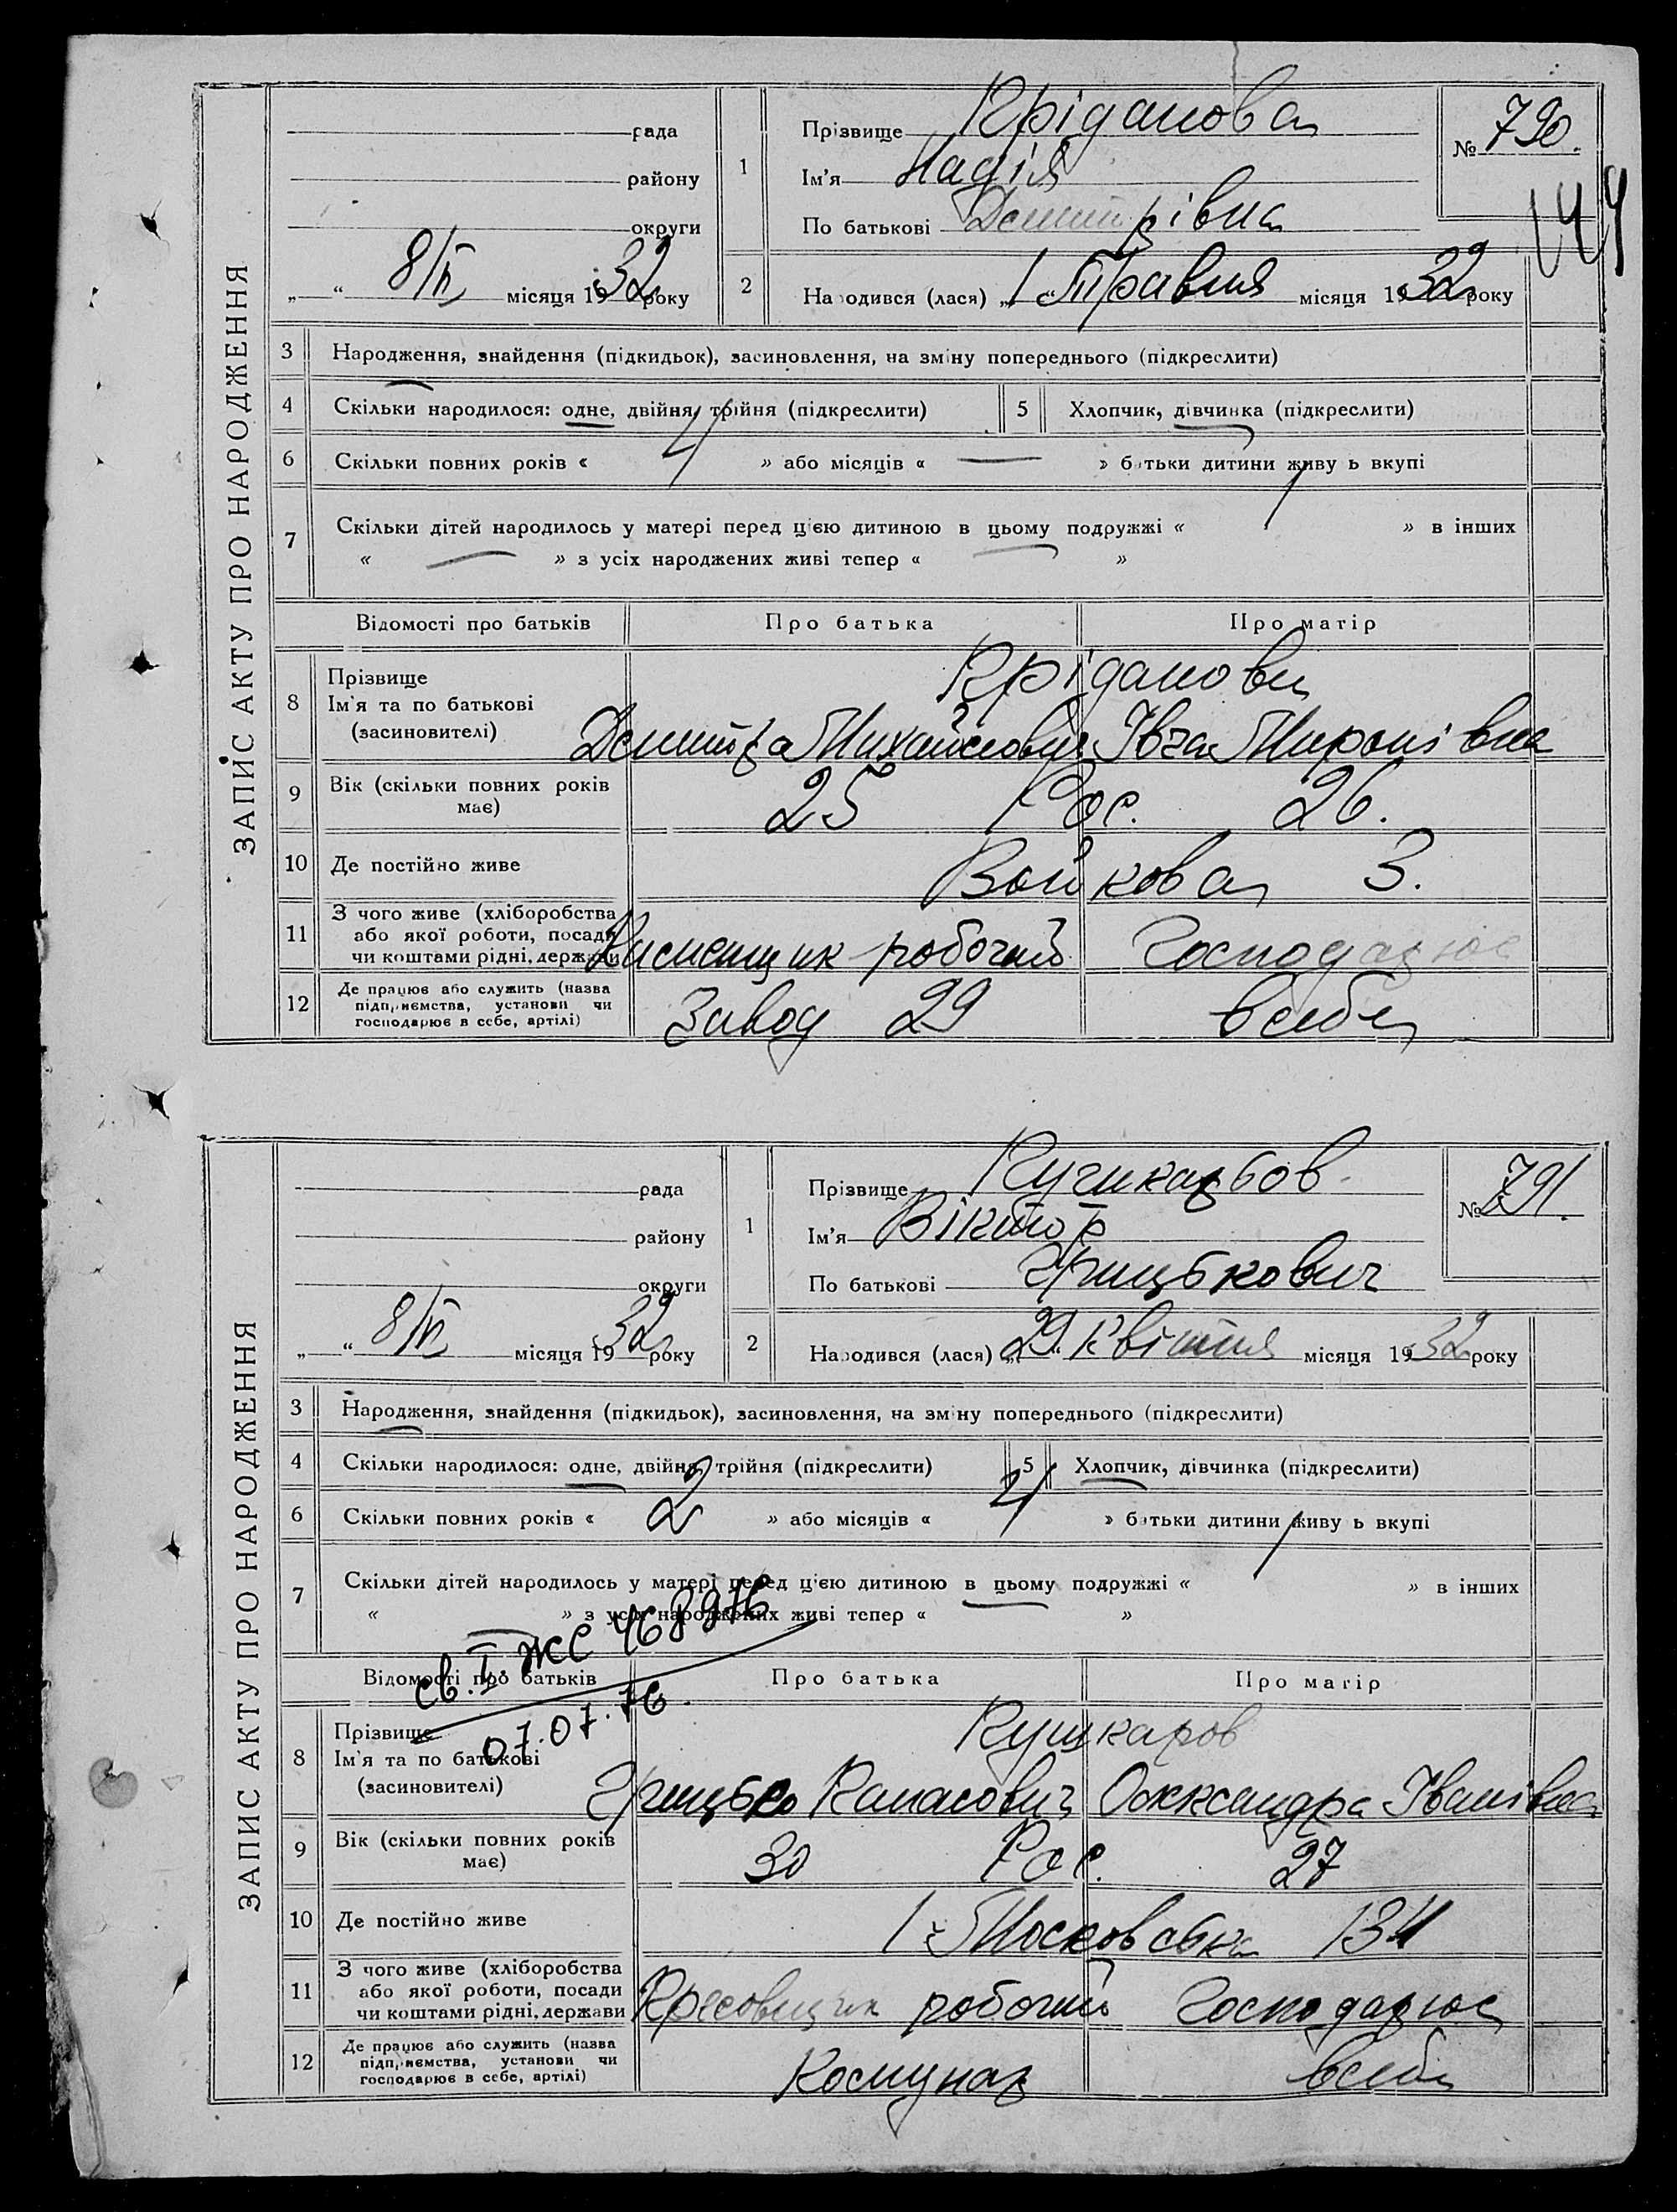 ЗАПИС АКТУ ПРО НАРОДЖЕННЯ
рада
району
округи
„ “ 8/VI місяця 1932 року
1
Прізвище Кріданова
Ім'я Надія
По батькові Дмитрівна
№ 790.
144
2
Народився (лася) „1“ Травня місяця 1932 року
3 Народження, знайдення (підкидьок), засиновлення, на зміну попереднього (підкреслити)
4 Скільки народилося: одне, двійня, трійня (підкреслити)
5 Хлопчик, дівчинка (підкреслити)
6 Скільки повних років « 4 » або місяців « — » батьки дитини живуть вкупі
7 Скільки дітей народилось у матері перед цією дитиною в цьому подружжі « 1 » в інших
« — » з усіх народжених живі тепер « »
Відомості про батьків Про батька Про матір
8 Прізвище
Ім'я та по батькові
(засиновителі)
Кріданови
Дмитро Михайлович Мироні вна
9 Вік (скільки повних років має) 25 Рос. 26.
10 Де постійно живе Войкова 3.
11 З чого живе (хліборобства або якої роботи, посади чи коштами рідні, держави робочий Господарює
12 Де працює або служить (назва підприємства, установи чи господарює в себе, артілі) Завод 29 в себе
ЗАПИС АКТУ ПРО НАРОДЖЕННЯ
рада
району
округи
„ “ 8/VI місяця 1932 року
1
Прізвище
Ім'я Віктор
По батькові Грицькович
№ 791.
2
Народився (лася) „29“ Квітня місяця 1932 року
3 Народження, знайдення (підкидьок), засиновлення, на зміну попереднього (підкреслити)
4 Скільки народилося: одне, двійня, трійня (підкреслити)
5 Хлопчик, дівчинка (підкреслити)
6 Скільки повних років « 2 » або місяців « 4 » батьки дитини живуть вкупі
7 Скільки дітей народилось у матері перед цією дитиною в цьому подружжі « 1 » в інших
« — » з усіх народжених живі тепер « »
св. I. ЖС 468976
07.07.76.
Відомості про батьків Про батька Про матір
8 Прізвище
Ім'я та по батькові
(засиновителі)
Кушкаров
Грицько Панасович Олександра Іванівна
9 Вік (скільки повних років має) 30 Рос. 27
10 Де постійно живе Московська 134
11 З чого живе (хліборобства або якої роботи, посади чи коштами рідні, держави Пресовщик робочий Господарює
12 Де працює або служить (назва підприємства, установи чи господарює в себе, артілі) Комунар в себе